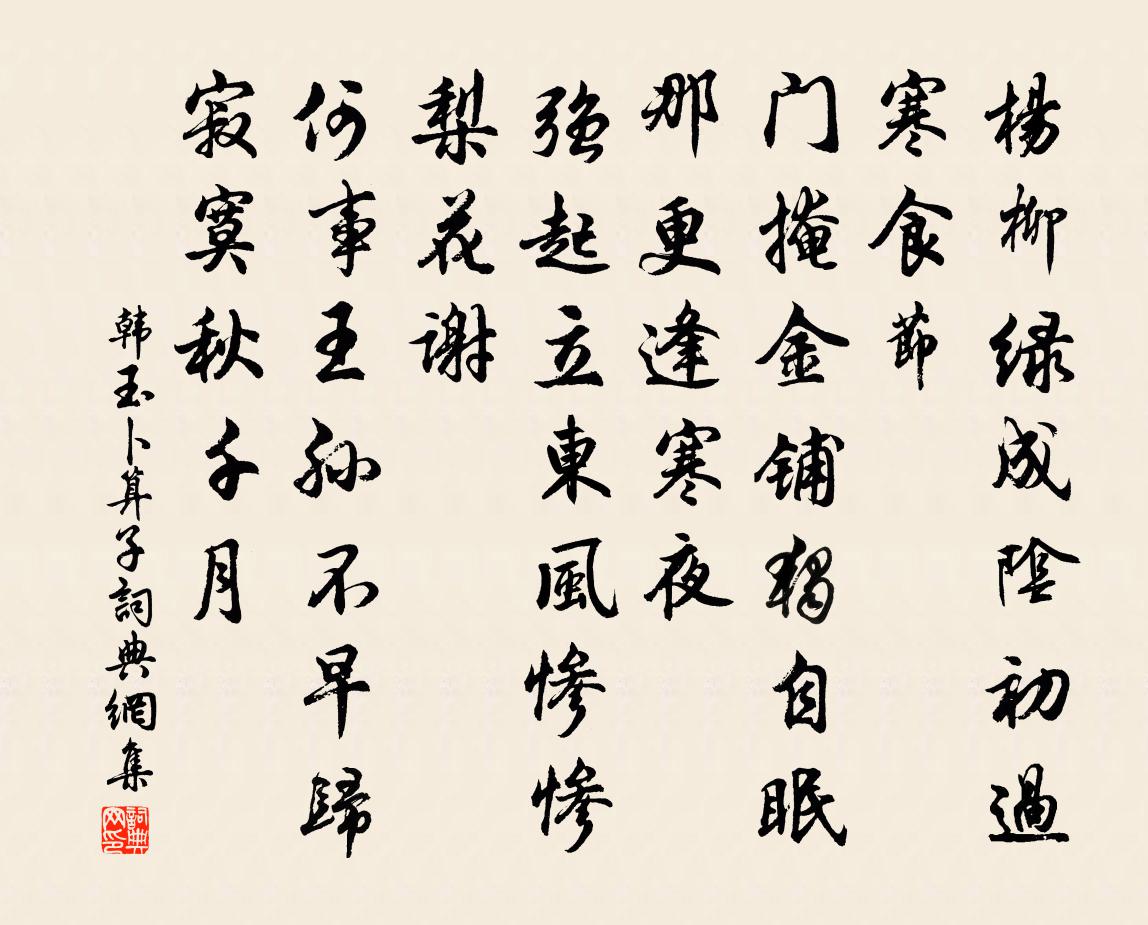 楊柳綠成陰初過
寒食節
門掩金鋪獨自眠
那更逢寒夜
強起立東風慘慘
梨花謝
何事王孫不早歸
寂寞秋千月
韩玉卜算子詞典網集
詞典网印